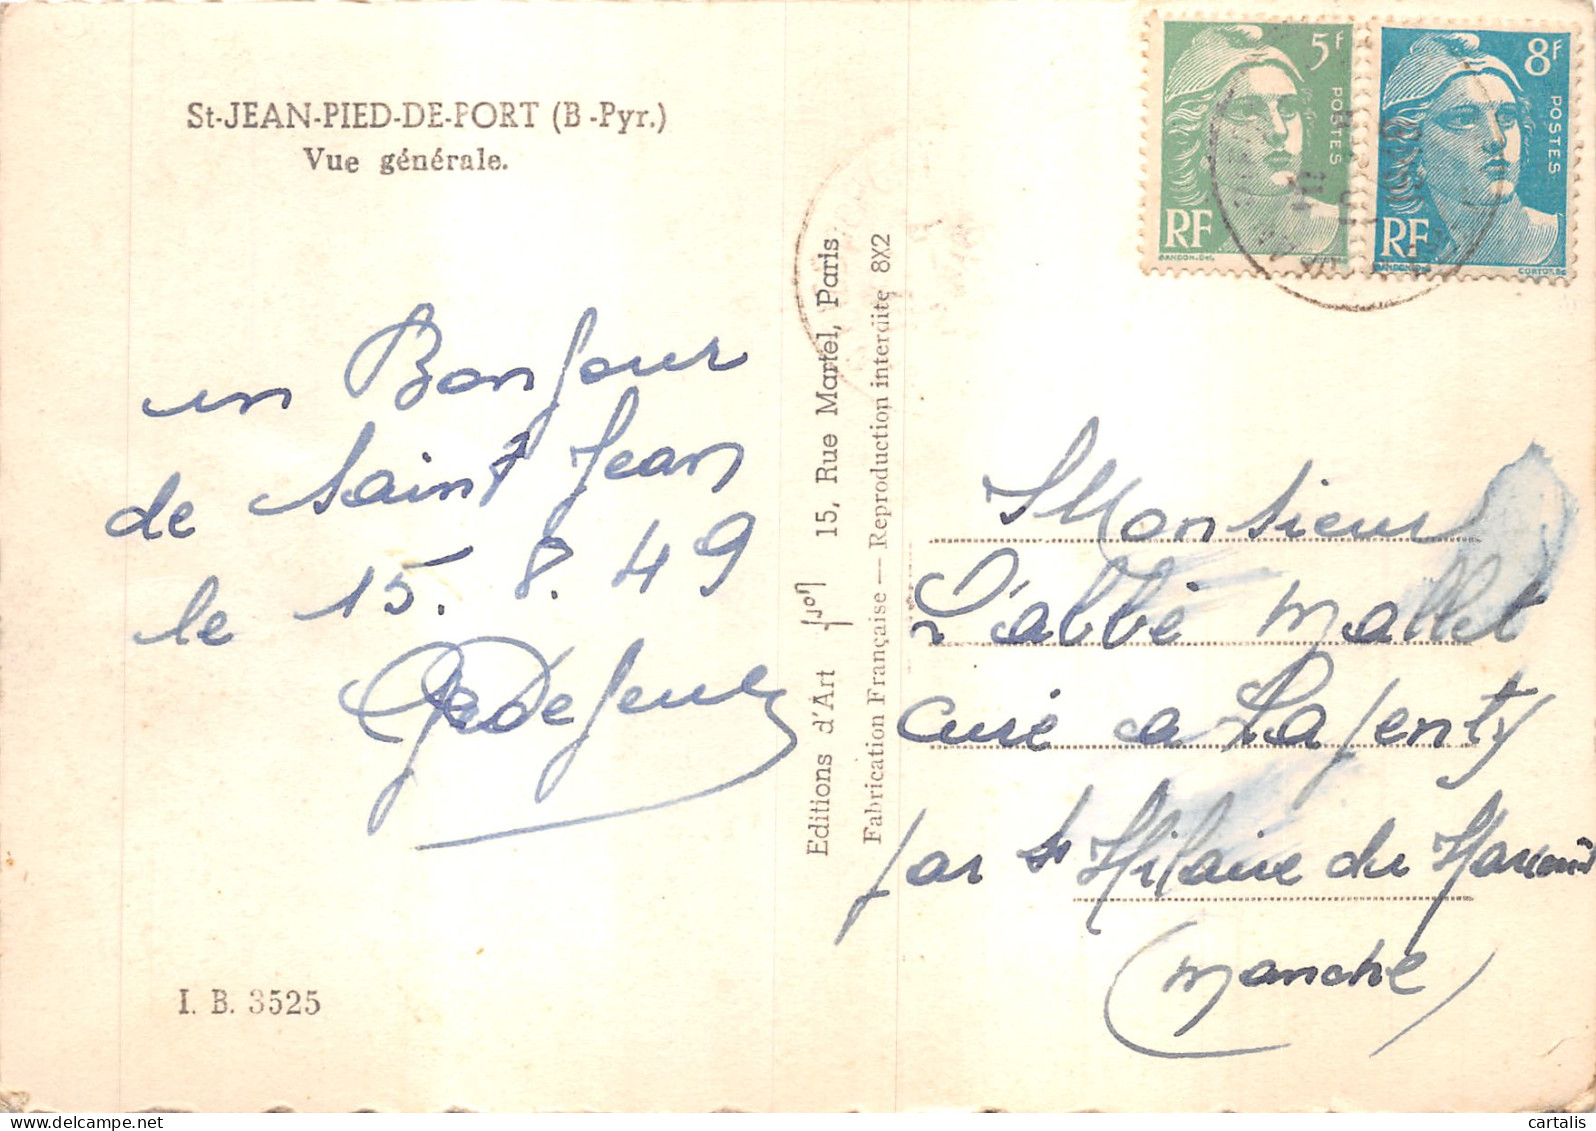 St-JEAN-PIED-DE-PORT (B-Pyr.)
Vue générale.
un Bonjour
de Saint Jean
le 15.8.49
I. B. 3525
Editions d'Art Yvon 15, Rue Martel, Paris
Fabrication Française — Reproduction interdite 8X2
5F
POSTES
RF
GANDON.DEL.
8F
POSTES
RF
CORTOT.SC
Monsieur
L'abbé Mallet
curé a Lapenty
par St Hilaire du Harcouët
(Manche)
cartalis
delcampe.net